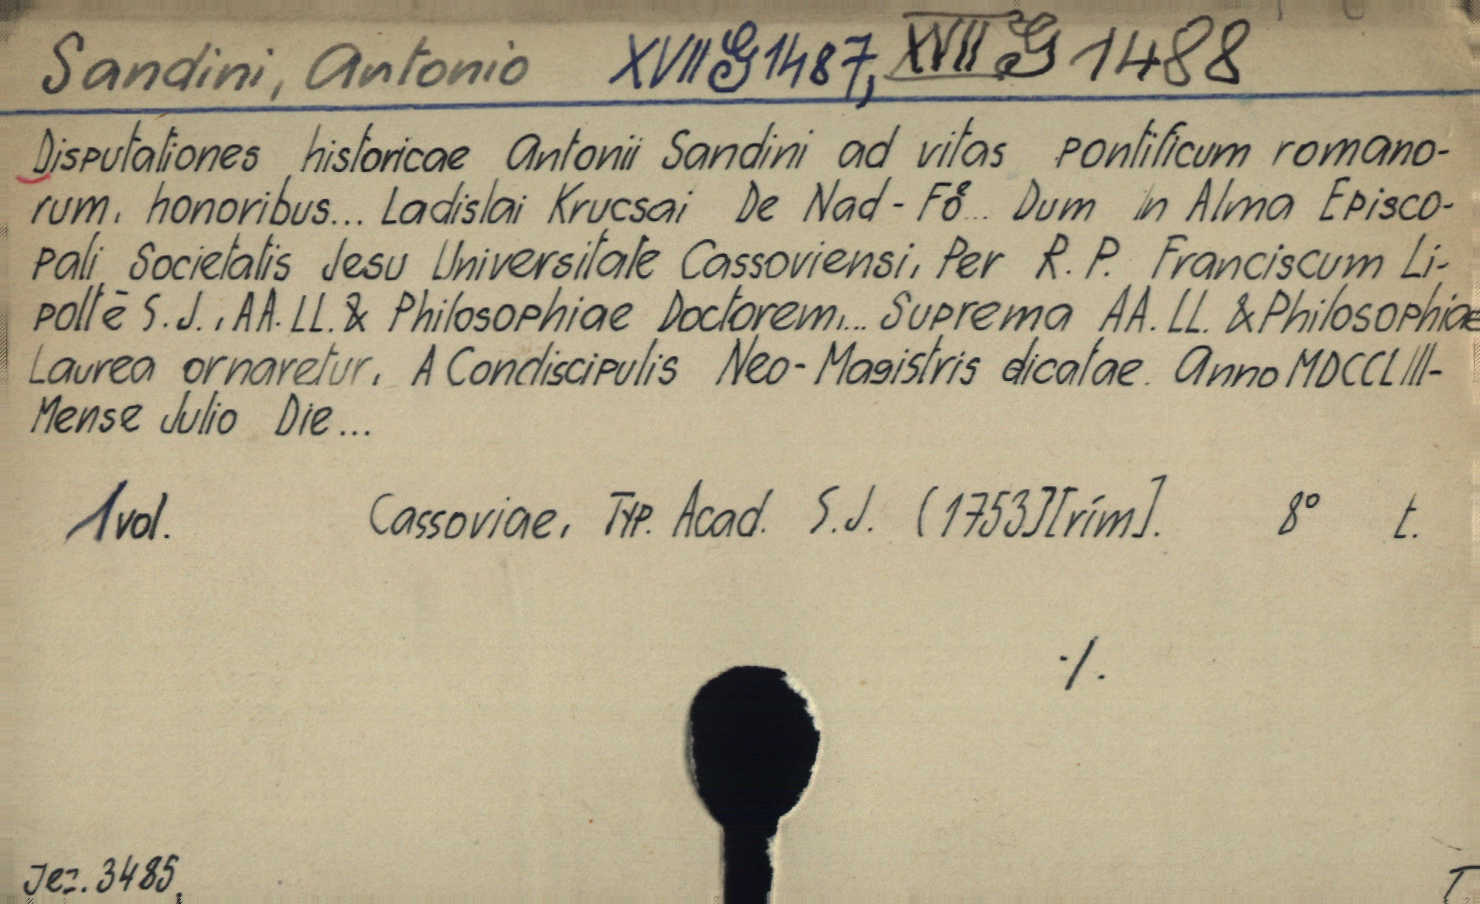 Sandini, Antonio XVII G 1487, XVII G 1488
Disputationes historicae Antonii Sandini ad vitas pontificum romano-
rum, honoribus... Ladislai Krucsai De Nad-Fő... Dum in Alma Episco-
pali Societatis Jesu Universitate Cassoviensi, Per R. P. Franciscum Li-
poltē S.J., AA. LL. & Philosophiae Doctorem,... Suprema AA. LL. & Philosophiae
Laurea ornaretur, A Condiscipulis Neo-Magistris dicatae. Anno MDCCLIII-
Mense Julio Die...
1 vol. Cassoviae, Typ. Acad. S.J. (1753)[rím]. 8° t.
·/.
Jez. 3485.